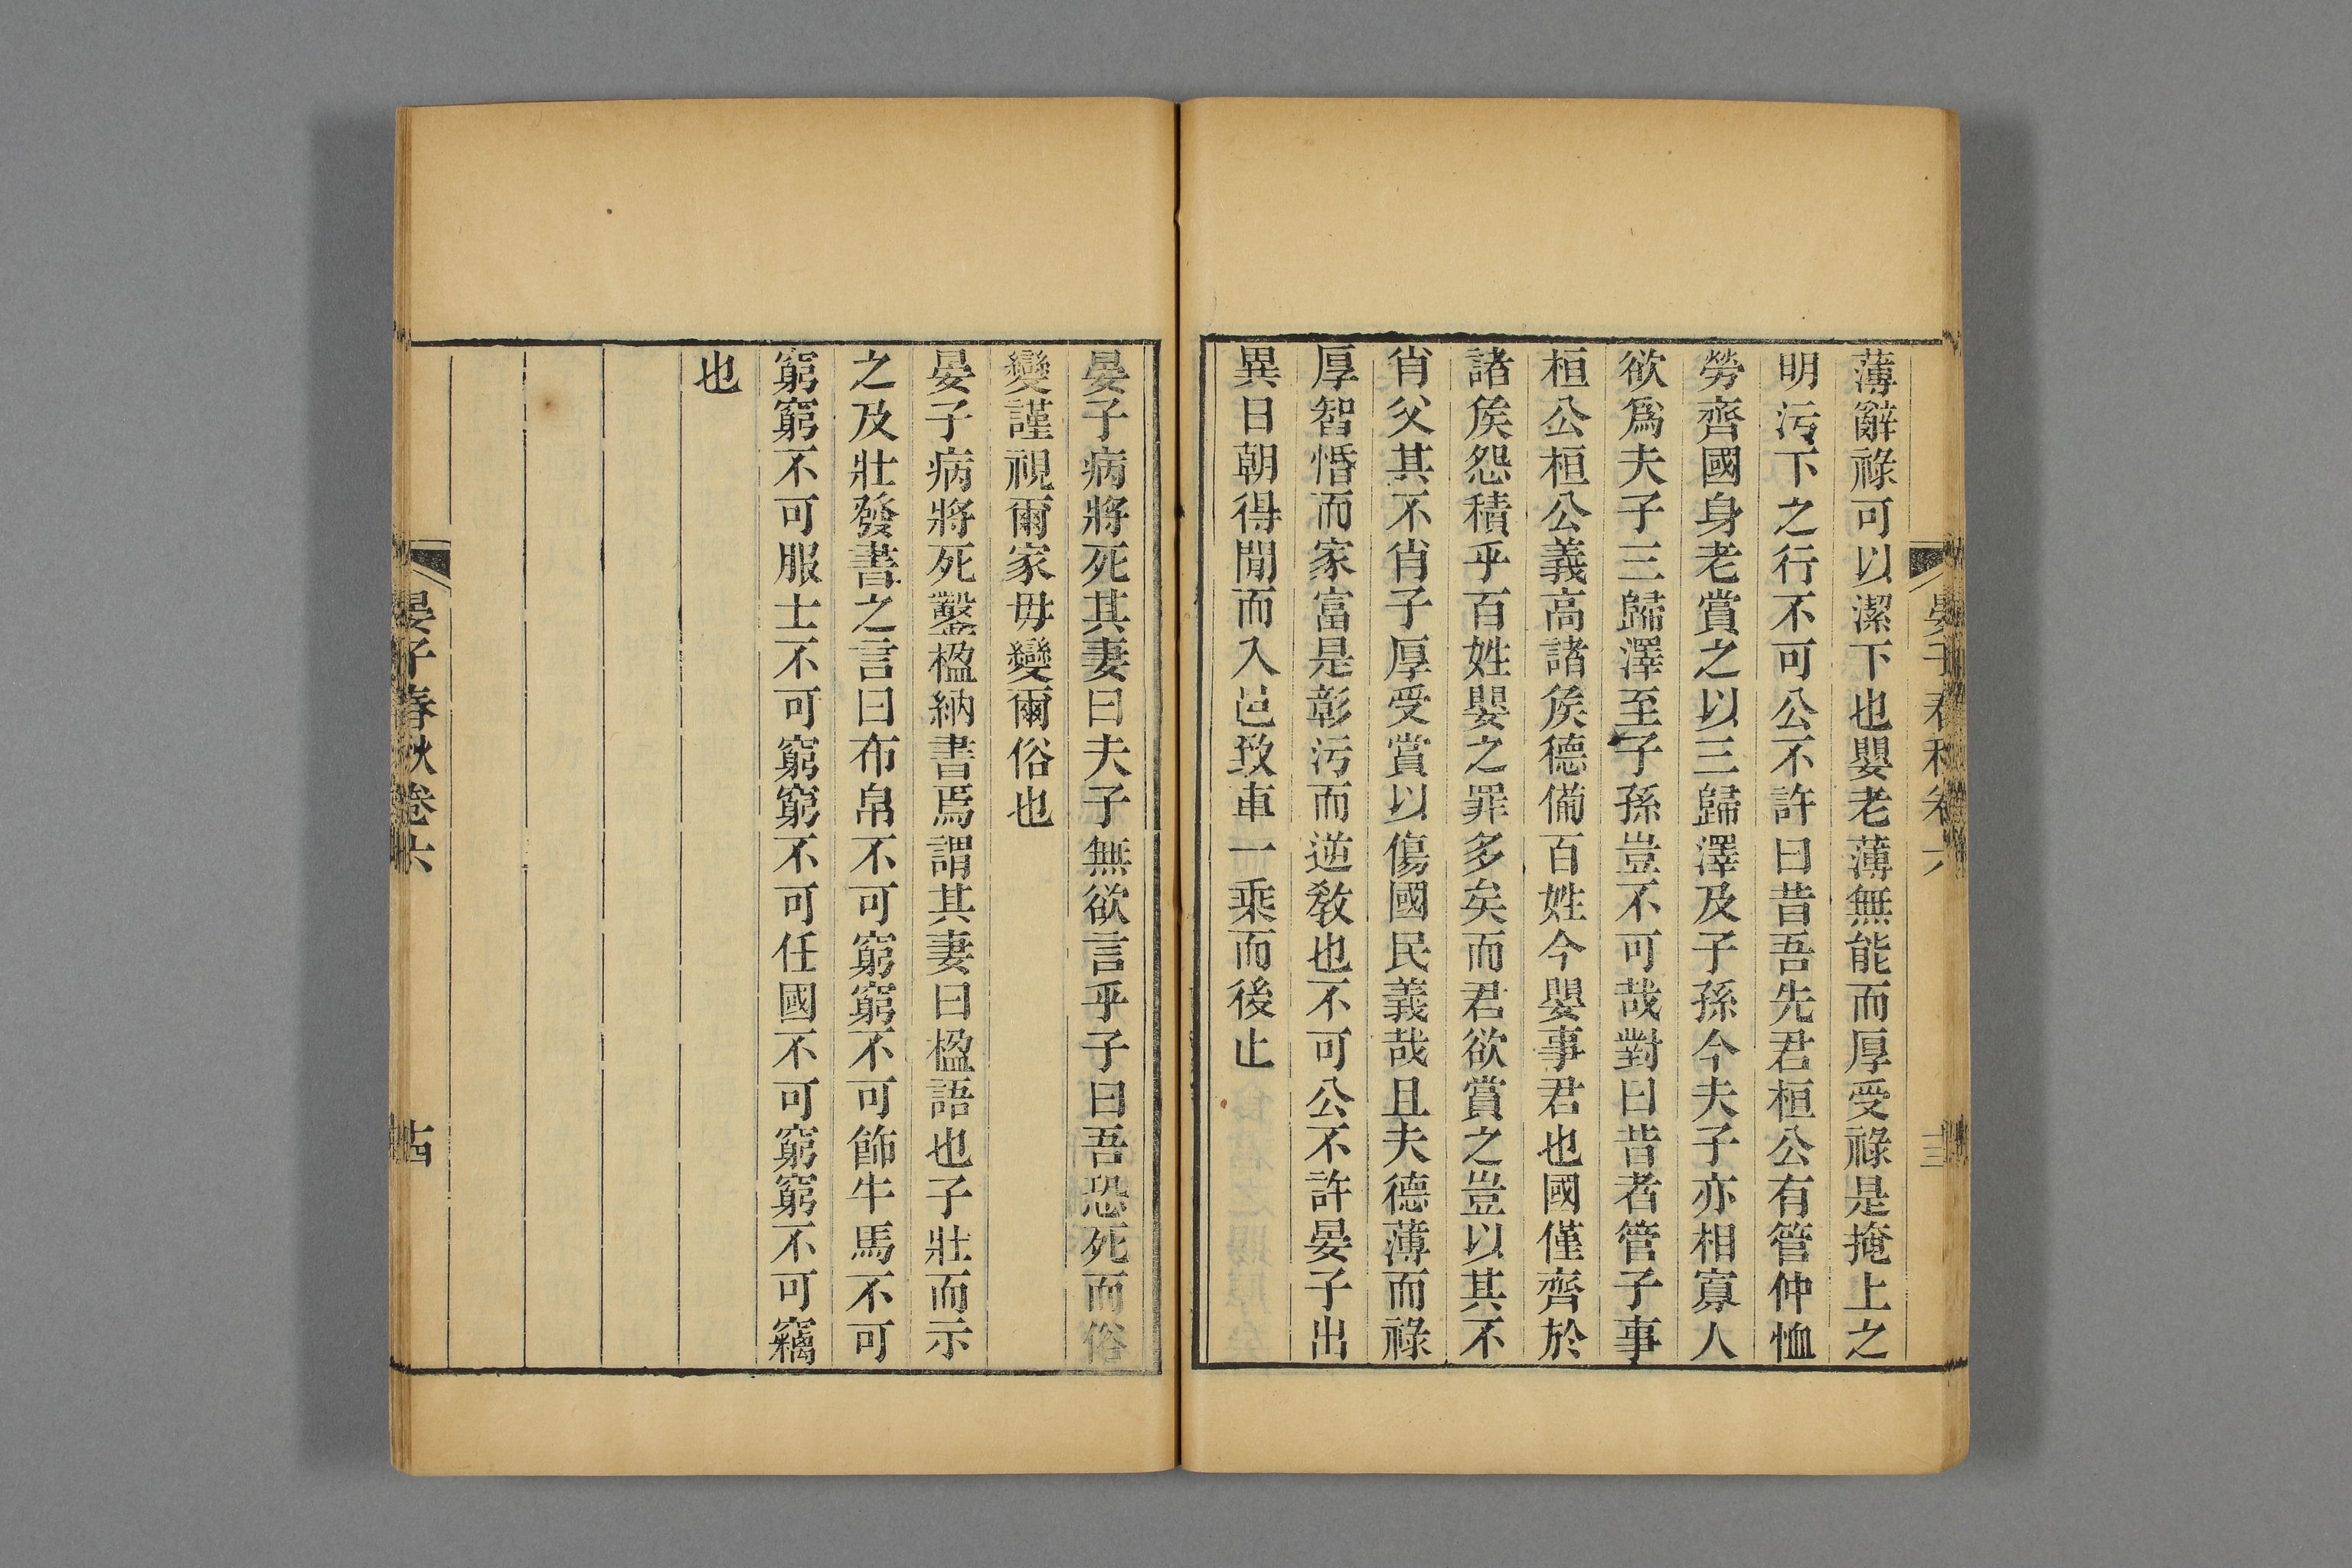 薄辭祿可以潔下也嬰老薄無能而厚受祿是掩上之
明污下之行不可公不許曰昔吾先君桓公有管仲恤
勞齊國身老賞之以三歸澤及子孫今夫子亦相寡人
欲爲夫子三歸澤至子孫豈不可哉對曰昔者管子事
桓公桓公義高諸矦德備百姓今嬰事君也國僅齊於
諸矦怨積乎百姓嬰之罪多矣而君欲賞之豈以其不
肖父其不肖子厚受賞以傷國民義哉且夫德薄而祿
厚智惛而家富是彰污而逆敎也不可公不許晏子出
異日朝得閒而入邑致車一乘而後止
晏子病將死其妻曰夫子無欲言乎子曰吾恐死而俗
變謹視爾家毋變爾俗也
晏子病將死鑿楹納書焉謂其妻曰楹語也子壯而示
之及壯發書之言曰布帛不可窮窮不可飾牛馬不可
窮窮不可服士不可窮窮不可任國不可窮窮不可竊
也
晏子春秋卷六